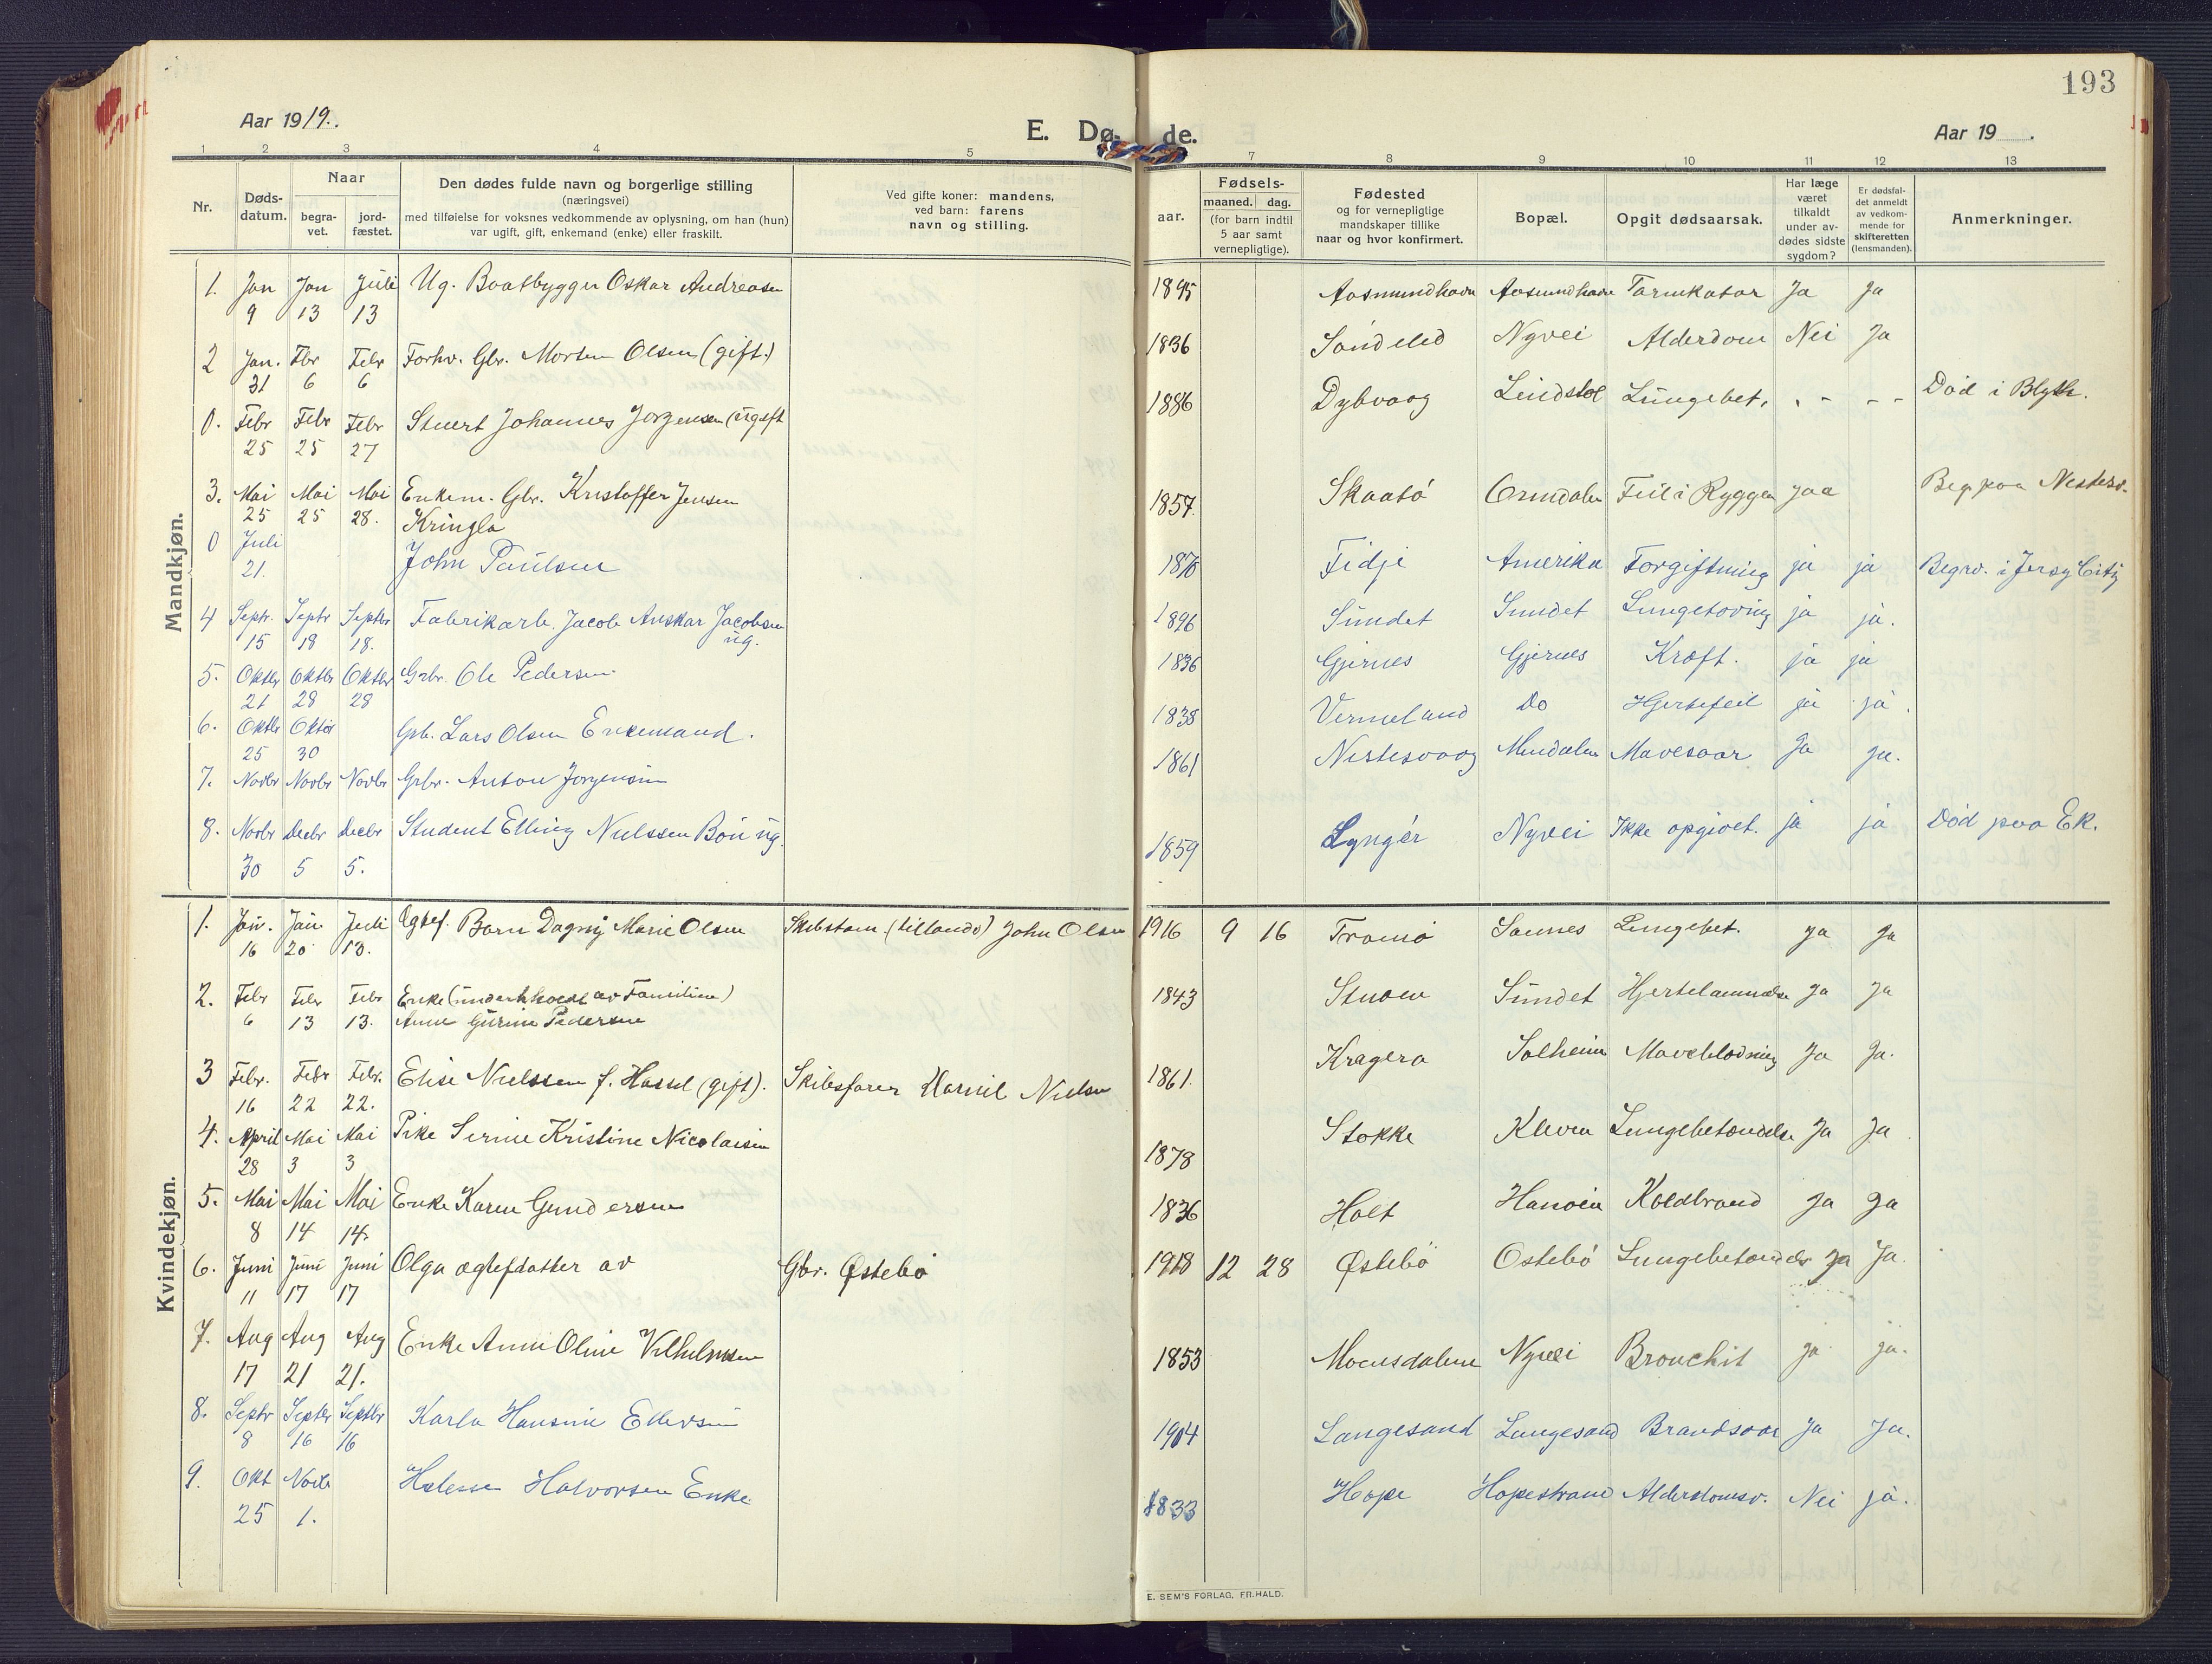 193
Aar 1919.
E. Dø- de.
Aar 19 .
1 2 3 4 5 7 8 9 10 11 12 13
Nr.
Døds-
datum.
Naar
begra-
vet.
jord-
fæstet.
Den dødes fulde navn og borgerlige stilling
(næringsvei)
med tilføielse for voksnes vedkommende av oplysning, om han (hun)
var ugift, gift, enkemand (enke) eller fraskilt.
Ved gifte koner: mandens,
ved barn: farens
navn og stilling.
aar.
Fødsels-
maaned. dag.
(for barn indtil
5 aar samt
vernepligtige).
Fødested
og for vernepligtige
mandskaper tillike
naar og hvor konfirmert.
Bopæl.
Opgit dødsaarsak.
Har læge
været
tilkaldt
under av-
dødes sidste
sygdom?
Er dødsfal-
det anmeldt
av vedkom-
mende for
skifteretten
(lensmanden).
Anmerkninger.
Mandkjøn.
1. Jan Jan Juli Ug. Baatbygger Oskar Andreasen 1895 Aasmundhavn Aasmundhavn Tarmkatar Ja Ja
9 13 13
2 Jan. Fbr Febr Forhv. Gbr. Morten Olsen (gift.) 1836 Söndeled Nyvei Alderdom Nei Ja
31 6 6
0. Febr Febr Febr Stuert Johannes Jorgensen (ugift 1886 Dybvaag Lindstol Lungebet. - - - - Död i Blyth.
25 25 27
3. Mai Mai Mai Enkem. Gbr. Kristoffer Jensen 1857 Skaatö Ormdalen Feil i Ryggen jaa Beg paa Nestesv.
25 25 28. Kringla
0 Juli John Paulsen 1870 Fidje Amerika Forgiftning ja ja Begrv. i Jersy City
21.
4 Septr. Septr Septbr Fabrikarb. Jacob Anskar Jacobsen 1896 Sundet Sundet Lungetæring ja ja.
15 18 18. ug.
5. Oktbr Oktbr Oktbr Grbr. Ole Pedersen 1836 Gjernes Gjernes Kræft. ja ja
21 28 28
6. Oktbr Oktbr Grb. Lars Olsen Enkemand. 1838 Vermeland Do Hjertefeil ja ja.
25 30
7. Novbr Novbr Novbr Grbr. Anton Jorgensen 1861 Nestesvaag Mindalen Mavesaar Ja ja.
8. Novbr Decbr Decbr Student Elling Nielssen Böu ug. 1859 Lyngör Nyvei Ikke opgivet. ja ja Död paa Ek.
30 5 5.
Kvindekjøn.
1. Jan. Jan Juli Ægtef. Barn Dagny Marie Olsen Skibstøm. (tillands) John Olsen 1916 9 16 Tromö Sannes Lungebet. ja Ja
16 20 13.
2. Febr Febr Febr Enke (underholdt av Familien) 1843 Stuoen Sundet Hjertelammelse Ja Ja
6 13 13. Anne Gurine Pedersen
3 Febr. Febr Febr. Elise Nielssen f. Hassel (gift). Skibsfører Harnil Nielsen 1861 Kragerø Solheim Maveblødning Ja Ja.
16 22 22.
4. April Mai Mai Pike Serine Kristine Nicolaisen 1878 Stokke Kleven Lungebetændelse Ja Ja
28 3 3
5. Mai Mai Mai Enke Karen Gundersen 1836 Holt Hanöen Koldbrand ja ja
8 14 14.
6. Juni Juni Juni Olga ægtefdatter av Gbr. Østebö 1918 12 28 Østebö Ostebö Lungebetændels ja Ja.
11 17 17
7. Aug Aug Aug Enke Anne Oline Vilhelmsen 1853 Moensdalene Nyvei Bronchit ja ja.
17 21 21.
8. Septr Septbr Septbr Karla Hansine Ellevsen 1904 Langesand Langesand Brandsaar Ja Ja.
8 16 16
9. Okt Novb Helene Halvorsen Enke 1833 Hope Hopestrand Alderdomsv. Nei ja.
25 1.
E. SEM'S FORLAG, FR.HALD.